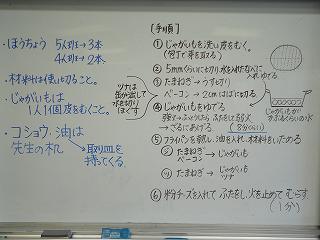 ・ほうちょう 5人班→3本
4人班→2本
・材料は使い切ること。
・じゃがいもは
1人1個皮をむくこと。
・コショウ・油は
先生の机
→取り皿を
持ってくる。
ツナは
缶が浅して
水を切り
ほぐす
[手順]
① じゃがいもを洗い皮をむく。
(包丁で芽を取る)
② 5mmくらいに切り水を入れたなべに
入れゆでる
③ たまねぎ→うす切り
ベーコン→2cmはばに切る
④ じゃがいもをゆでる
強火→ふっとうしたら
(8分くらい)
→ざるにあげる
じゃがいもが
かぶるくらいの水
⑤ フライパンを熱し、油を入れ、材料をいためる
たまねぎ
ベーコン
→じゃがいも
ツ
たまねぎ→じゃがいも
ツナ
⑥ 粉チーズを入れてふたをし、火を止めてむらす
(1分)